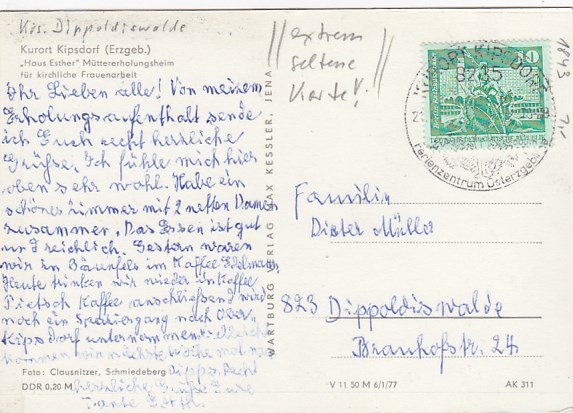 Krs. Dippoldiswalde
Kurort Kipsdorf (Erzgeb.)
„Haus Esther" Müttererholungsheim
für kirchliche Frauenarbeit
Ihr Lieben alle! Von meinem
Erholungsaufenthalt sende
ich Euch recht herrliche
Grüße. Ich fühle mich hier
oben sehr wohl. Habe ein
schönes Zimmer mit 2 netten Damen
zusammen. Das Essen ist gut
und reichlich. Gestern waren
wir in Bärenfels im Kaffee Edelmann
Heute trinken wir wieder in Kaffee
Pietsch Kaffee anschließend wird
noch ein Spaziergang nach Ober-
Kipsdorf unternommen
kommen wir nächste Woche mal
Dipps. Recht
herzliche Grüße Eure
Tante
Foto: Clausnitzer, Schmiedeberg
DDR 0,20 M
WARTBURG VERLAG MAX KESSLER, JENA
//extrem
seltene
Karte!//
1843
KURORT KIPSDORF
8235
Ferienzentrum Osterzgebirge
10
Familie
Dieter Müller
823 Dippoldiswalde
Brauhofstr. 24
V 11 50 M 6/1/77
AK 311